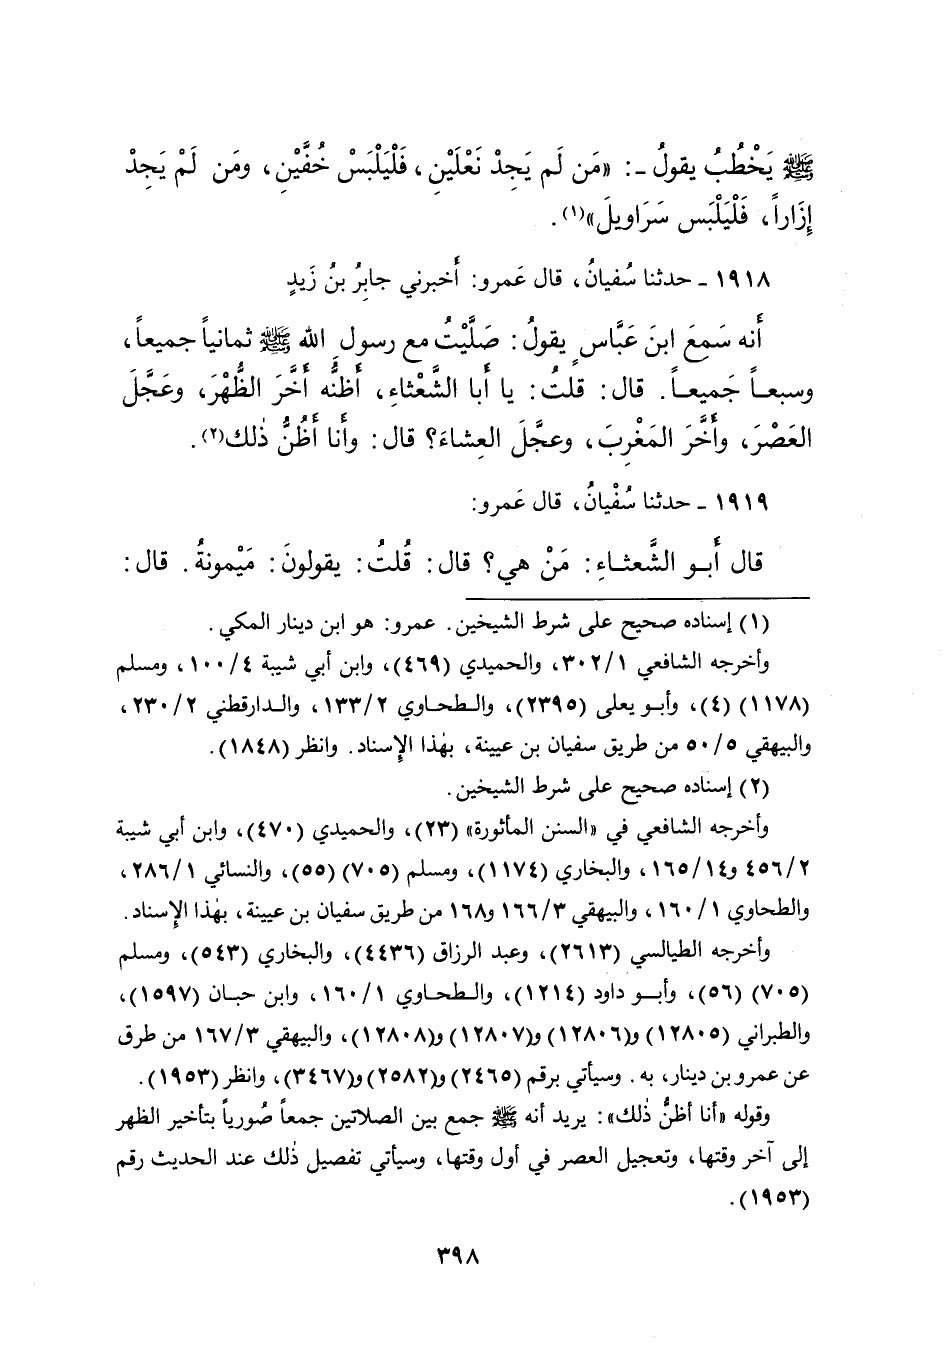 ﷺ يَخْطُبُ يقولُ ـ: «مَن لَم يَجِدْ نَعْلَيْنِ، فَلْيَلْبَسْ خُفَّيْنِ، ومَن لَمْ يَجِدْ
إِزَاراً، فَلْيَلْبَس سَرَاويلَ»(١).
١٩١٨ ـ حدثنا سُفيانُ، قال عَمرو: أَخبرني جابِرُ بنُ زَيدٍ
أَنه سَمِعَ ابنَ عَبَّاسٍ يقولُ: صَلَّيْتُ مع رسولِ الله ﷺ ثمانياً جميعاً،
وسبعاً جَميعاً. قال: قلتُ: يا أَبا الشَّعْثاءِ، أَظنُّه أَخَّرَ الظُّهْرَ، وعَجَّلَ
العَصْرَ، وأَخَّرَ المَغْرِبَ، وعجَّلَ العِشاءَ؟ قال: وأَنا أَظُنُّ ذٰلك(٢).
١٩١٩ ـ حدثنا سُفْيانُ، قال عَمرو:
قال أَبو الشَّعثاءِ: مَنْ هي؟ قال: قُلتُ: يقولونَ: مَيْمونةُ. قال:
(١) إسناده صحيح على شرط الشيخين. عمرو: هو ابن دينار المكي.
وأخرجه الشافعي ٣٠٢/١، والحميدي (٤٦٩)، وابن أبي شيبة ١٠٠/٤، ومسلم
(١١٧٨) (٤)، وأبو يعلى (٢٣٩٥)، والطحاوي ١٣٣/٢، والدارقطني ٢٣٠/٢،
والبيهقي ٥٠/٥ من طريق سفيان بن عيينة، بهٰذا الإسناد. وانظر (١٨٤٨).
(٢) إسناده صحيح على شرط الشيخين.
وأخرجه الشافعي في «السنن المأثورة» (٢٣)، والحميدي (٤٧٠)، وابن أبي شيبة
٤٥٦/٢ و١٦٥/١٤، والبخاري (١١٧٤)، ومسلم (٧٠٥) (٥٥)، والنسائي ٢٨٦/١،
والطحاوي ١٦٠/١، والبيهقي ١٦٦/٣ و١٦٨ من طريق سفيان بن عيينة، بهٰذا الإسناد.
وأخرجه الطيالسي (٢٦١٣)، وعبد الرزاق (٤٤٣٦)، والبخاري (٥٤٣)، ومسلم
(٧٠٥) (٥٦)، وأبو داود (١٢١٤)، والطحاوي ١٦٠/١، وابن حبان (١٥٩٧)،
والطبراني (١٢٨٠٥) و(١٢٨٠٦) و(١٢٨٠٧) و(١٢٨٠٨)، والبيهقي ١٦٧/٣ من طرق
عن عمرو بن دينار، به. وسيأتي برقم (٢٤٦٥) و(٢٥٨٢) و(٣٤٦٧)، وانظر (١٩٥٣).
وقوله «أنا أظنُّ ذٰلك»: يريد أنه ﷺ جمع بين الصلاتين جمعاً صُورياً بتأخير الظهر
إلى آخر وقتها، وتعجيل العصر في أول وقتها، وسيأتي تفصيل ذٰلك عند الحديث رقم
(١٩٥٣).
٣٩٨